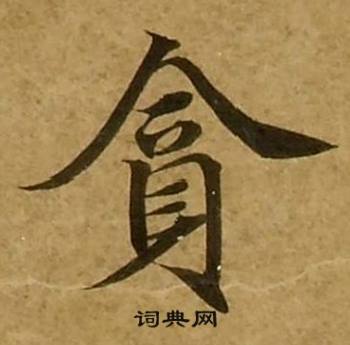 貪
词典网